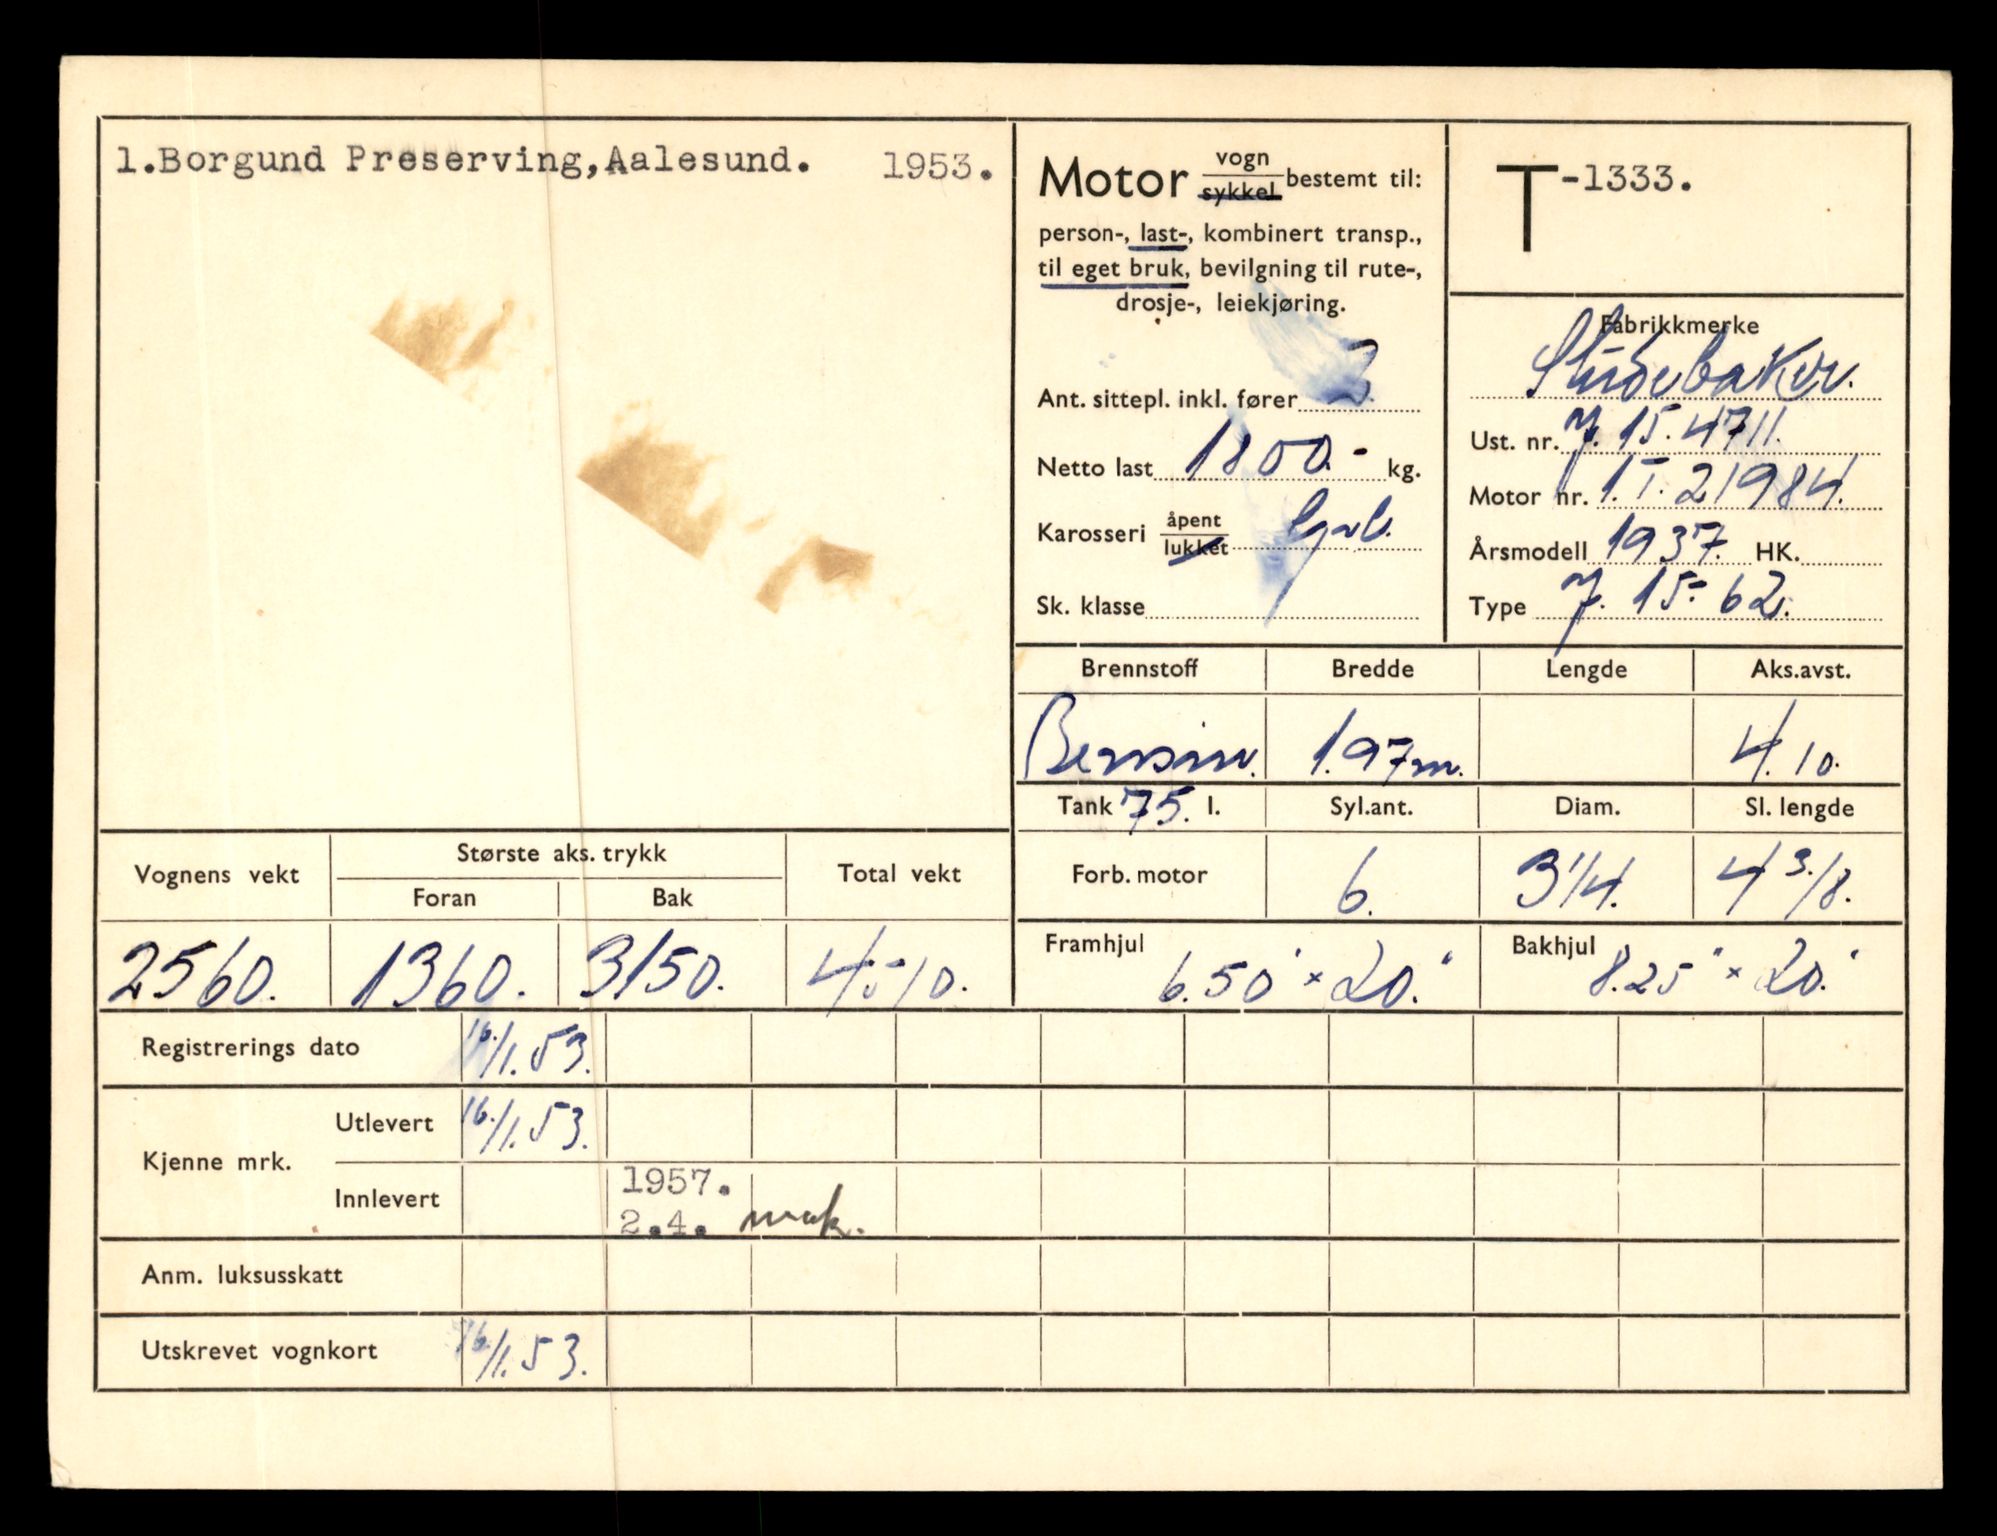 1.Borgund Preserving,Aalesund. 1953.
Motor vogn
sykkel bestemt til:
person-, last-, kombinert transp.,
til eget bruk, bevilgning til rute-,
drosje-, leiekjøring.
Ant. sittepl. inkl. fører
Netto last 1800.- kg.
Karosseri åpent
lukket
Sk. klasse
T-1333.
Fabrikkmerke
Studebaker.
Ust. nr. J. 15. 4711.
Motor nr. 1.T. 21984.
Årsmodell 1937. HK.
Type J. 15- 62.
Brennstoff Bredde Lengde Aks.avst.
Bensin. 1.97m. 4.10.
Tank 75. l. Syl.ant. Diam. Sl. lengde
Forb. motor 6. 3 1/4. 4 3/8.
Framhjul 6.50" × 20." Bakhjul 8.25" × 20."
Vognens vekt Største aks. trykk Total vekt
Foran Bak
2560. 1360. 3150. 4510.
Registrerings dato 16./1.53.
Kjenne mrk. Utlevert 16./1.53.
Innlevert 1957.
2.4. mak.
Anm. luksusskatt
Utskrevet vognkort 16/1.53.